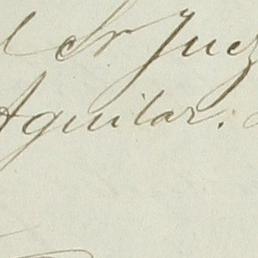 l Sr Juez
Aguilar.